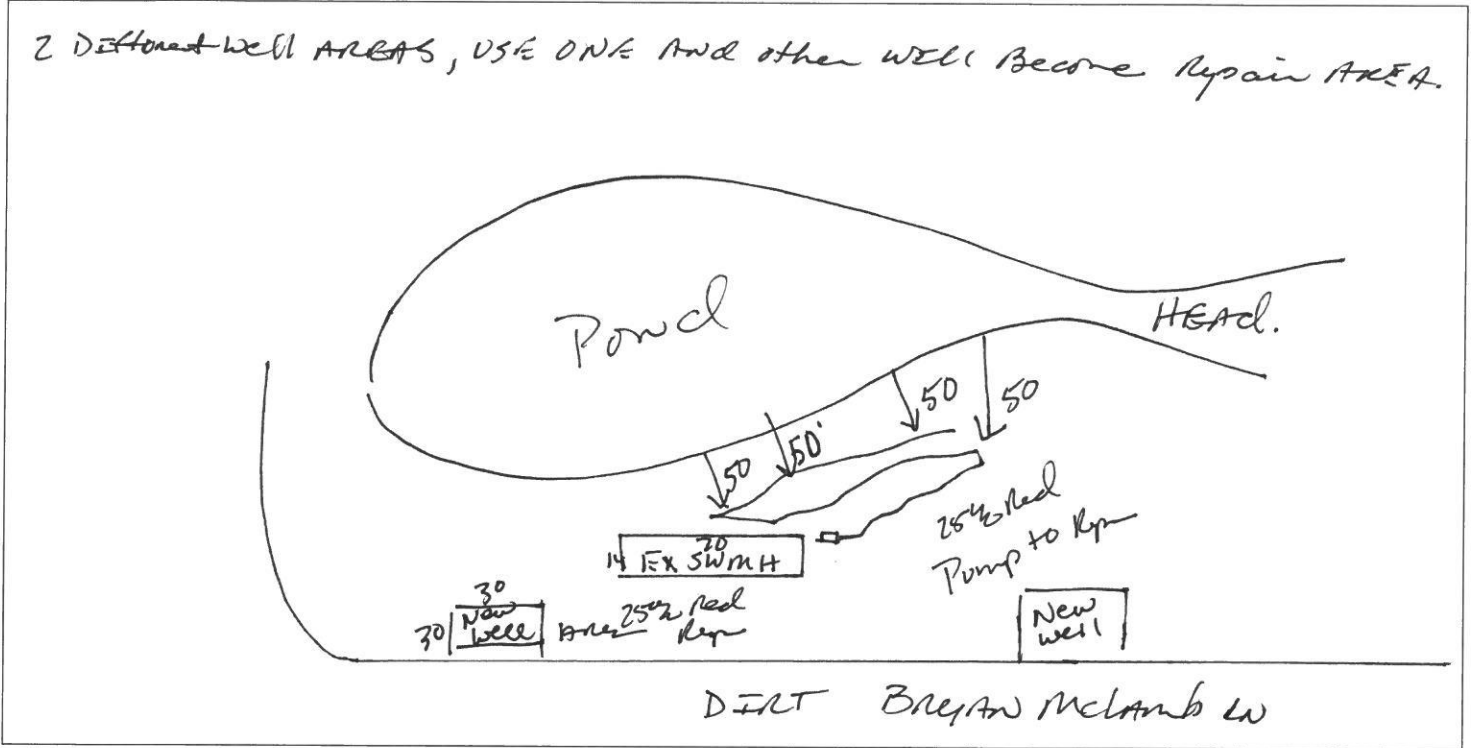 2 Different Well AREAS, USE ONE AND other WILL Become Repair AREA.
Pond
HEAd.
50
50'
50
50
25% Red
Pump to Rep
70
14 Ex SWMH
30
30 New Well
Area 25% Red
Rep
New
Well
DIRT BRYAN McLAmb LN